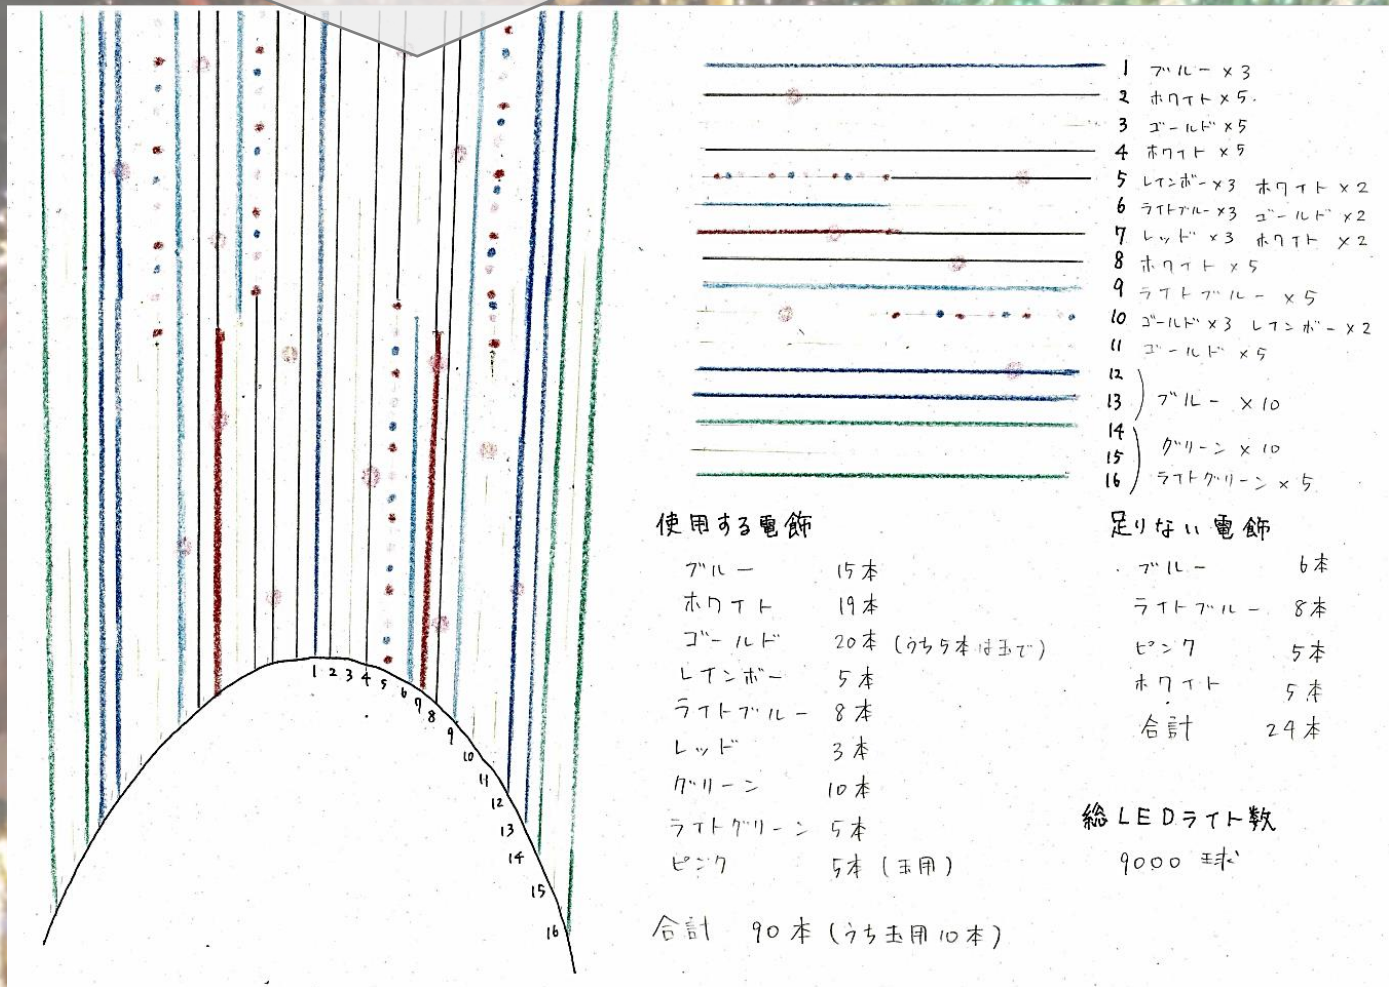 1 ブルー×3
2 ホワイト×5
3 ゴールド×5
4 ホワイト×5
5 レインボー×3 ホワイト×2
6 ライトブルー×3 ゴールド×2
7 レッド×3 ホワイト×2
8 ホワイト×5
9 ライトブルー×5
10 ゴールド×3 レインボー×2
11 ゴールド×5
12
13 ブルー×10
14
15 グリーン×10
16 ライトグリーン×5
1 2 3 4 5 6 7 8 9 10 11 12 13 14 15 16
使用する電飾
ブルー 15本
ホワイト 19本
ゴールド 20本(うち5本は玉で)
レインボー 5本
ライトブルー 8本
レッド 3本
グリーン 10本
ライトグリーン 5本
ピンク 5本(玉用)
合計 90本(うち玉用10本)
足りない電飾
ブルー 6本
ライトブルー 8本
ピンク 5本
ホワイト 5本
合計 24本
総LEDライト数
9000球